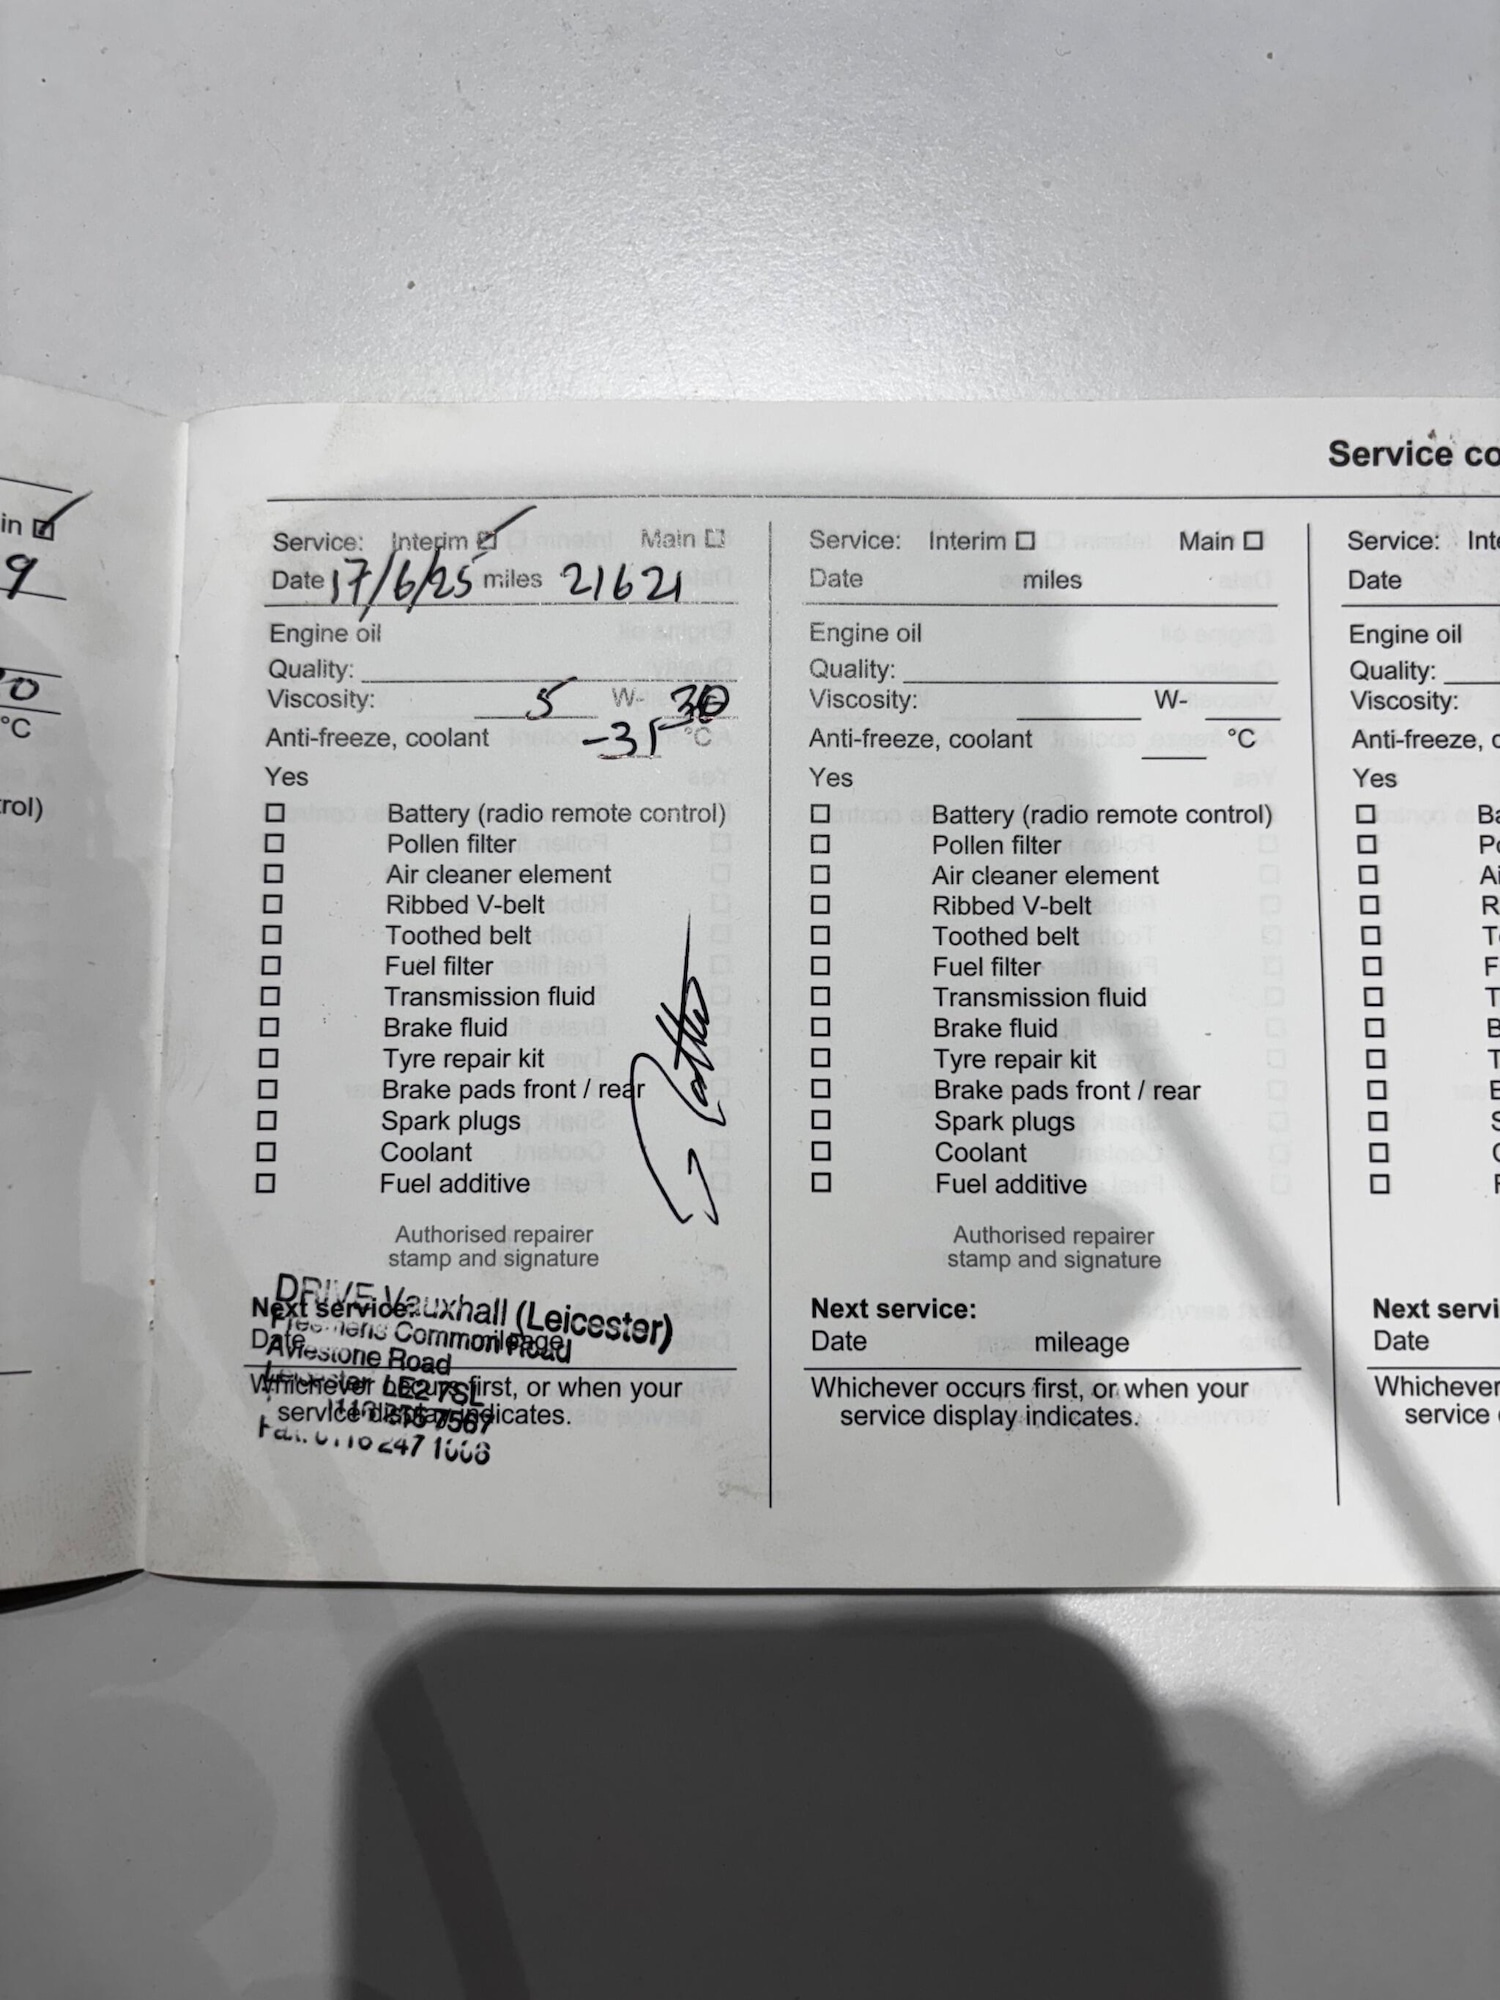 in
9
0
°C
rol)
Service co
Service: Interim Main
Date 17/6/25 miles 21621
Engine oil
Quality:
Viscosity: 5 W- 30
Anti-freeze, coolant °C
Yes
Battery (radio remote control)
Pollen filter
Air cleaner element
Ribbed V-belt
Toothed belt
Fuel filter
Transmission fluid
Brake fluid
Tyre repair kit
Brake pads front / rear
Spark plugs
Coolant
Fuel additive
Authorised repairer
stamp and signature
DRIVE Vauxhall (Leicester)
Next service:
Common Road
Date mileage
Road
LE2 7SL
Whichever occurs first, or when your
service display indicates.
Service: Interim Main
Date miles
Engine oil
Quality:
Viscosity: W-
Anti-freeze, coolant °C
Yes
Battery (radio remote control)
Pollen filter
Air cleaner element
Ribbed V-belt
Toothed belt
Fuel filter
Transmission fluid
Brake fluid
Tyre repair kit
Brake pads front / rear
Spark plugs
Coolant
Fuel additive
Authorised repairer
stamp and signature
Next service:
Date mileage
Whichever occurs first, or when your
service display indicates.
Service: Inte
Date
Engine oil
Quality:
Viscosity:
Anti-freeze, c
Yes
Ba
Po
Ai
R
To
F
T
B
T
B
S
C
F
Next servi
Date
Whichever
service